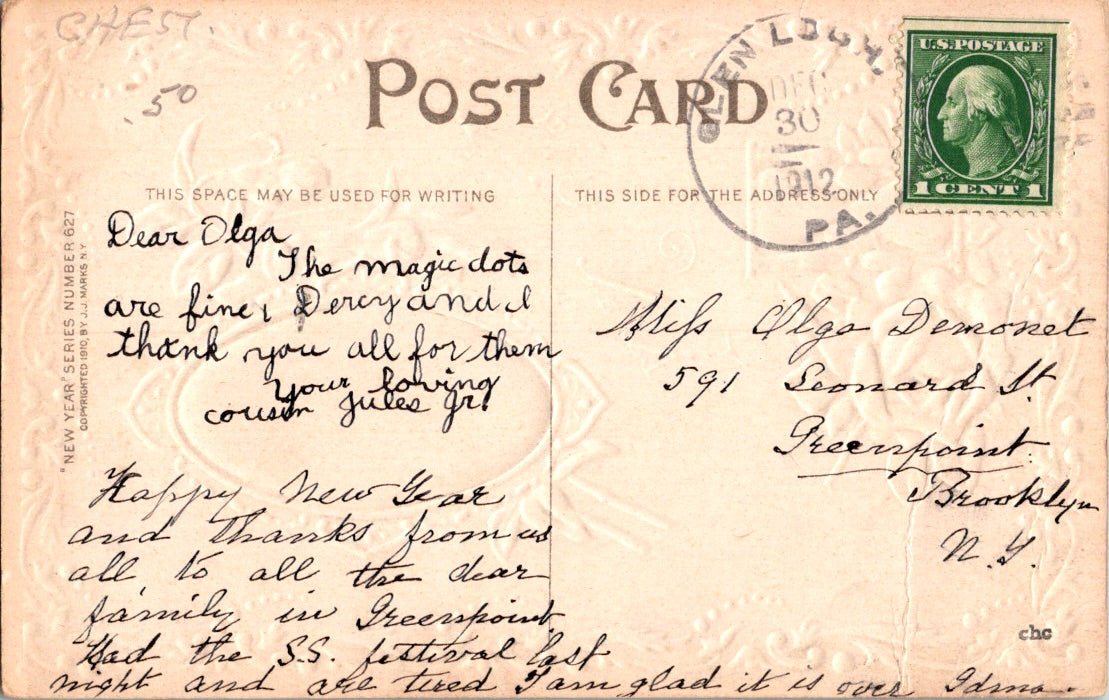 CHEST.
.50
POST CARD
GLEN LOCH,
DEC
30
1912
PA.
U.S. POSTAGE
1 CENT 1
THIS SPACE MAY BE USED FOR WRITING
THIS SIDE FOR THE ADDRESS ONLY
"NEW YEAR" SERIES NUMBER 627
COPYRIGHTED 1910, BY J.J. MARKS N.Y.
Dear Olga
The magic dots
are fine, Dercy and I
thank you all for them
your loving
cousin Jules Jr.
Happy New Year
and thanks from us
all to all the dear
family in Greenpoint.
Had the S.S. festival last
night and are tired I am glad it is over
Miss Olga Demonet
591 Leonard St.
Greenpoint.
Brooklyn
N.Y.
chc